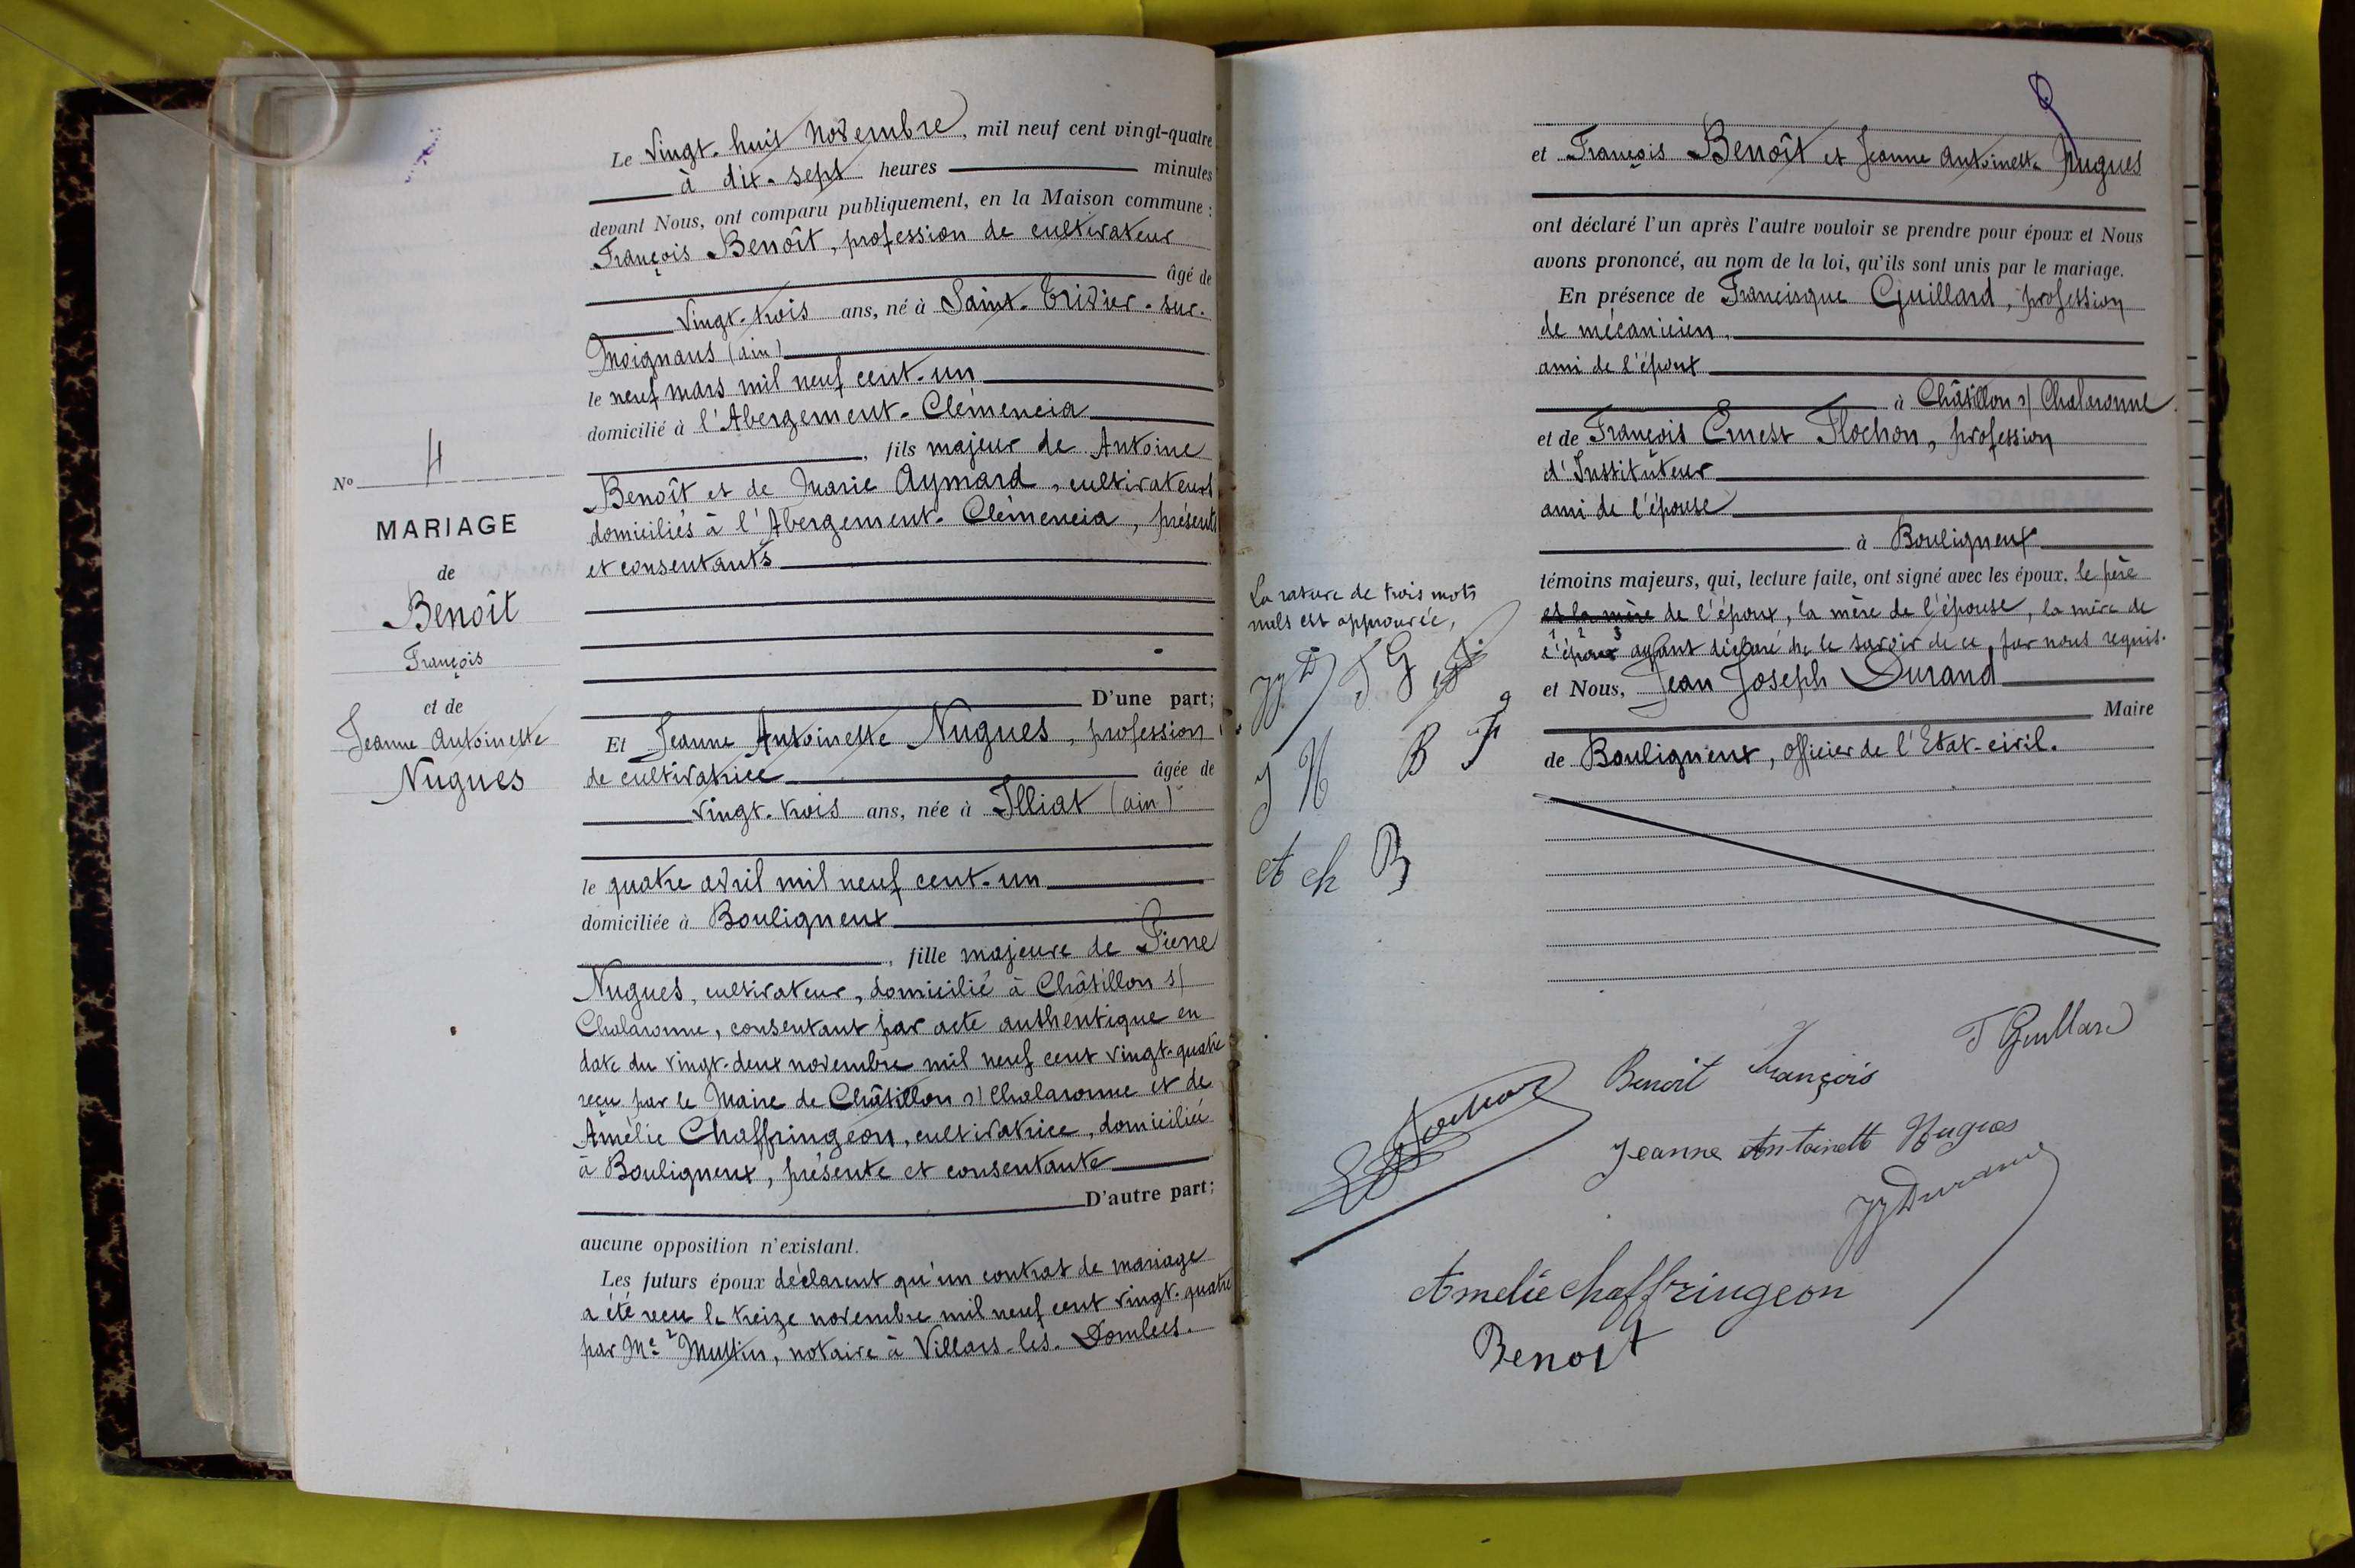 N° 4
MARIAGE
de
Benoît
François
et de
Jeanne Antoinette
Nugues
Le vingt-huit Novembre, mil neuf cent vingt-quatre
à dix-sept heures minutes
devant Nous, ont comparu publiquement, en la Maison commune :
François Benoît, profession de cultivateur
âgé de
vingt-trois ans, né à Saint-Trivier-sur-
Moignans (ain)
le neuf mars mil neuf cent-un
domicilié à l'Abergement-Clémencia
, fils majeur de Antoine
Benoît et de Marie Aymard, cultivateurs
domiciliés à l'Abergement-Clémencia, présents
et consentants
D'une part;
Et Jeanne Antoinette Nugues, profession
de cultivatrice âgée de
vingt-trois ans, née à Illiat (ain)
le quatre avril mil neuf cent-un
domiciliée à Bouligneux
, fille majeure de Pierre
Nugues, cultivateur, domicilié à Châtillon s/
Chalaronne, consentant par acte authentique en
date du vingt-deux novembre mil neuf cent vingt-quatre
reçu par le Maire de Châtillon s/ Chalaronne et de
Amélie Chaffringeon, cultivatrice, domiciliée
à Bouligneux, présente et consentante
D'autre part;
aucune opposition n'existant.
Les futurs époux déclarent qu'un contrat de mariage
a été reçu le treize novembre mil neuf cent vingt-quatre
par Me Muttin, notaire à Villars-les-Dombes.
et François Benoît et Jeanne Antoinette Nugues
ont déclaré l'un après l'autre vouloir se prendre pour époux et Nous
avons prononcé, au nom de la loi, qu'ils sont unis par le mariage.
En présence de Francisque Guillard, profession
de mécanicien,
ami de l'époux
à Châtillon s/ Chalaronne.
et de François Ernest Flochon, profession
d'Instituteur
ami de l'épouse
à Bouligneux
témoins majeurs, qui, lecture faite, ont signé avec les époux, le père
et la mère de l'époux, la mère de l'épouse, la mère de
1 2 3
l'époux ayant déclaré ne le savoir de ce par nous requis.
et Nous, Jean Joseph Durand
Maire
de Bouligneux, officier de l'Etat-civil.
La rature de trois mots
nuls est approuvée,
JJD FG
J N B F
A ch B
Benoit François
F Guillard
Jeanne Antoinette Nugues
JJ Durand
Amelie Chaffringeon
Benoit